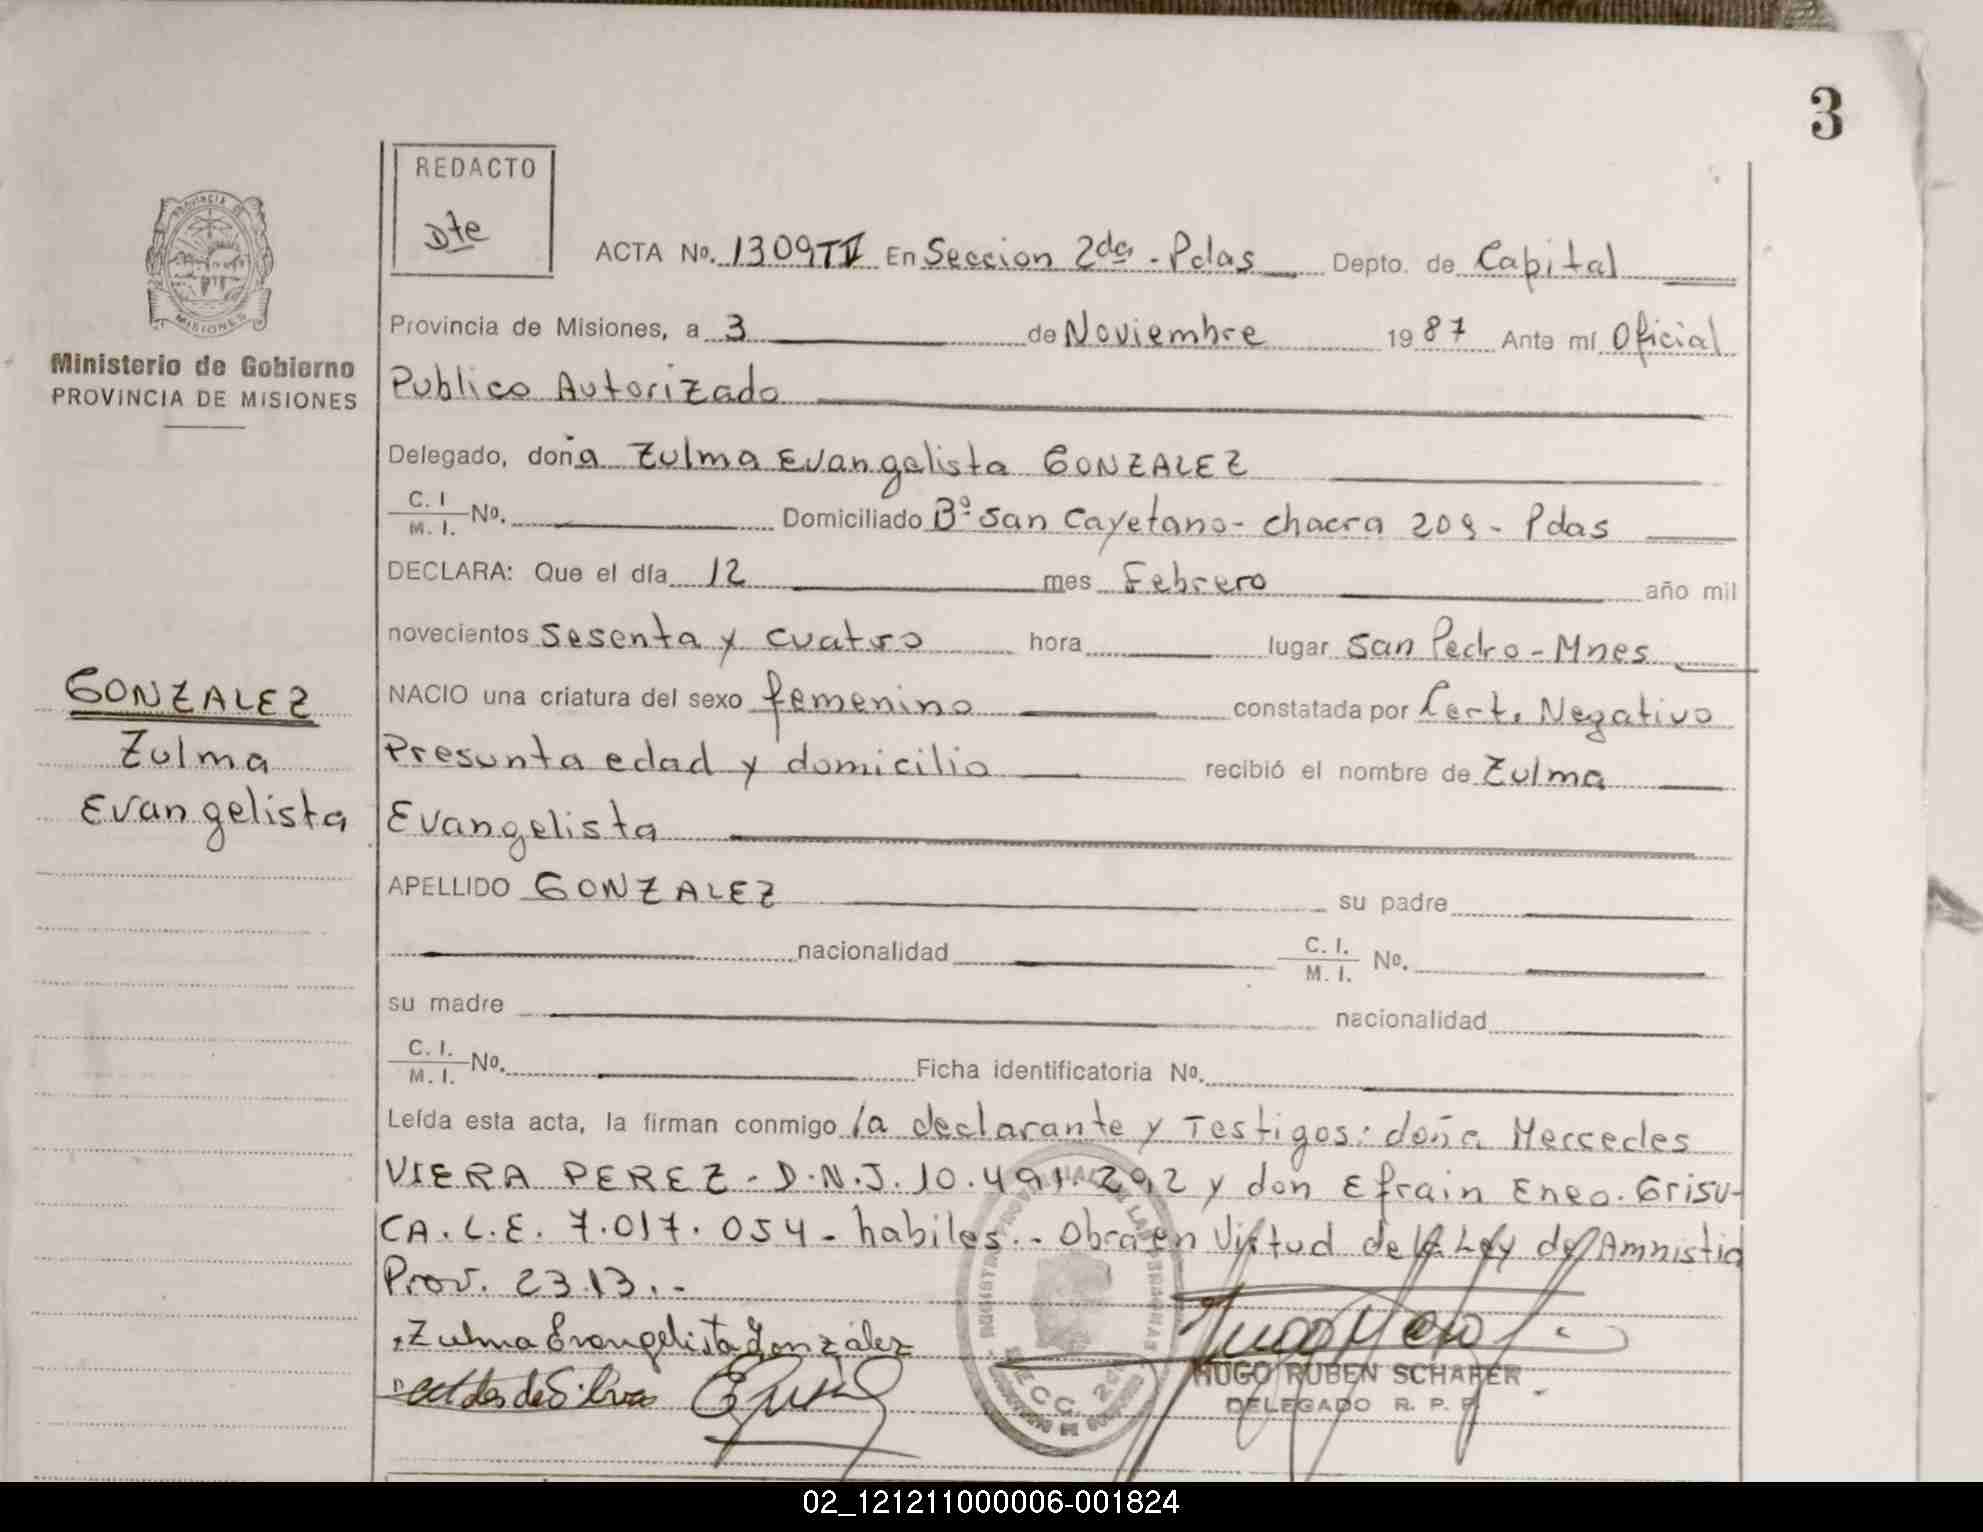 3
REDACTO
Dte
PROVINCIA DE
MISIONES
Ministerio de Gobierno
PROVINCIA DE MISIONES
ACTA Nº. 1309 En Seccion 2da - Pdas Depto. de Capital
Provincia de Misiones, a 3 de Noviembre 1987 Ante mí Oficial
Publico Autorizado
Delegado, doña Zulma Evangelista GONZALEZ
C. I. M. I. Nº. Domiciliado Bº San Cayetano - chacra 209 - Pdas
DECLARA: Que el día 12 mes Febrero año mil
novecientos Sesenta y cuatro hora lugar San Pedro - Mnes
NACIO una criatura del sexo femenino constatada por Cert. Negativo
Presunta edad y domicilio recibió el nombre de Zulma
Evangelista
APELLIDO GONZALEZ su padre
nacionalidad C. I. M. I. Nº.
su madre nacionalidad
C. I. M. I. Nº. Ficha identificatoria Nº.
Leída esta acta, la firman conmigo la declarante y Testigos: doña Mercedes
VIERA PEREZ - D.N.I. 10.491.292 y don Efrain Eneo. GRISU-
CA. L.E. 7.017.054 - habiles.- Obra en Virtud de la Ley de Amnistia
Prov. 2313.-
Zulma Evangelista González
HUGO RUBEN SCHAFER
DELEGADO R. P. P.
GONZALEZ
Zulma
Evangelista
02_121211000006-001824